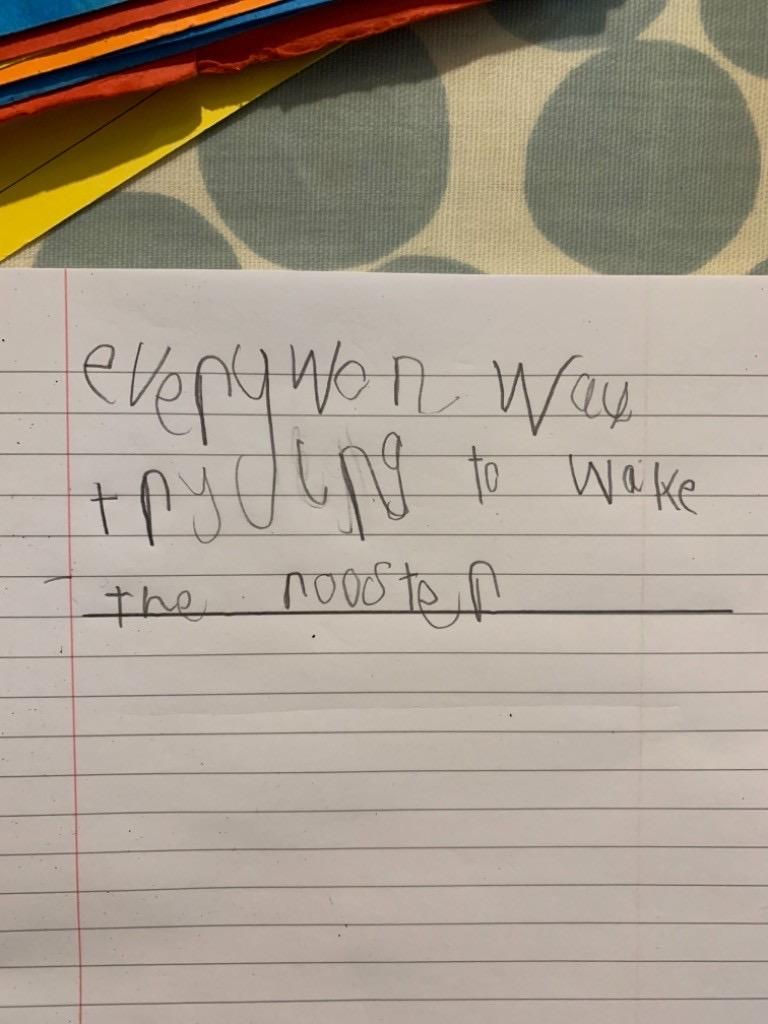 everywon was
trying to wake
the rooster